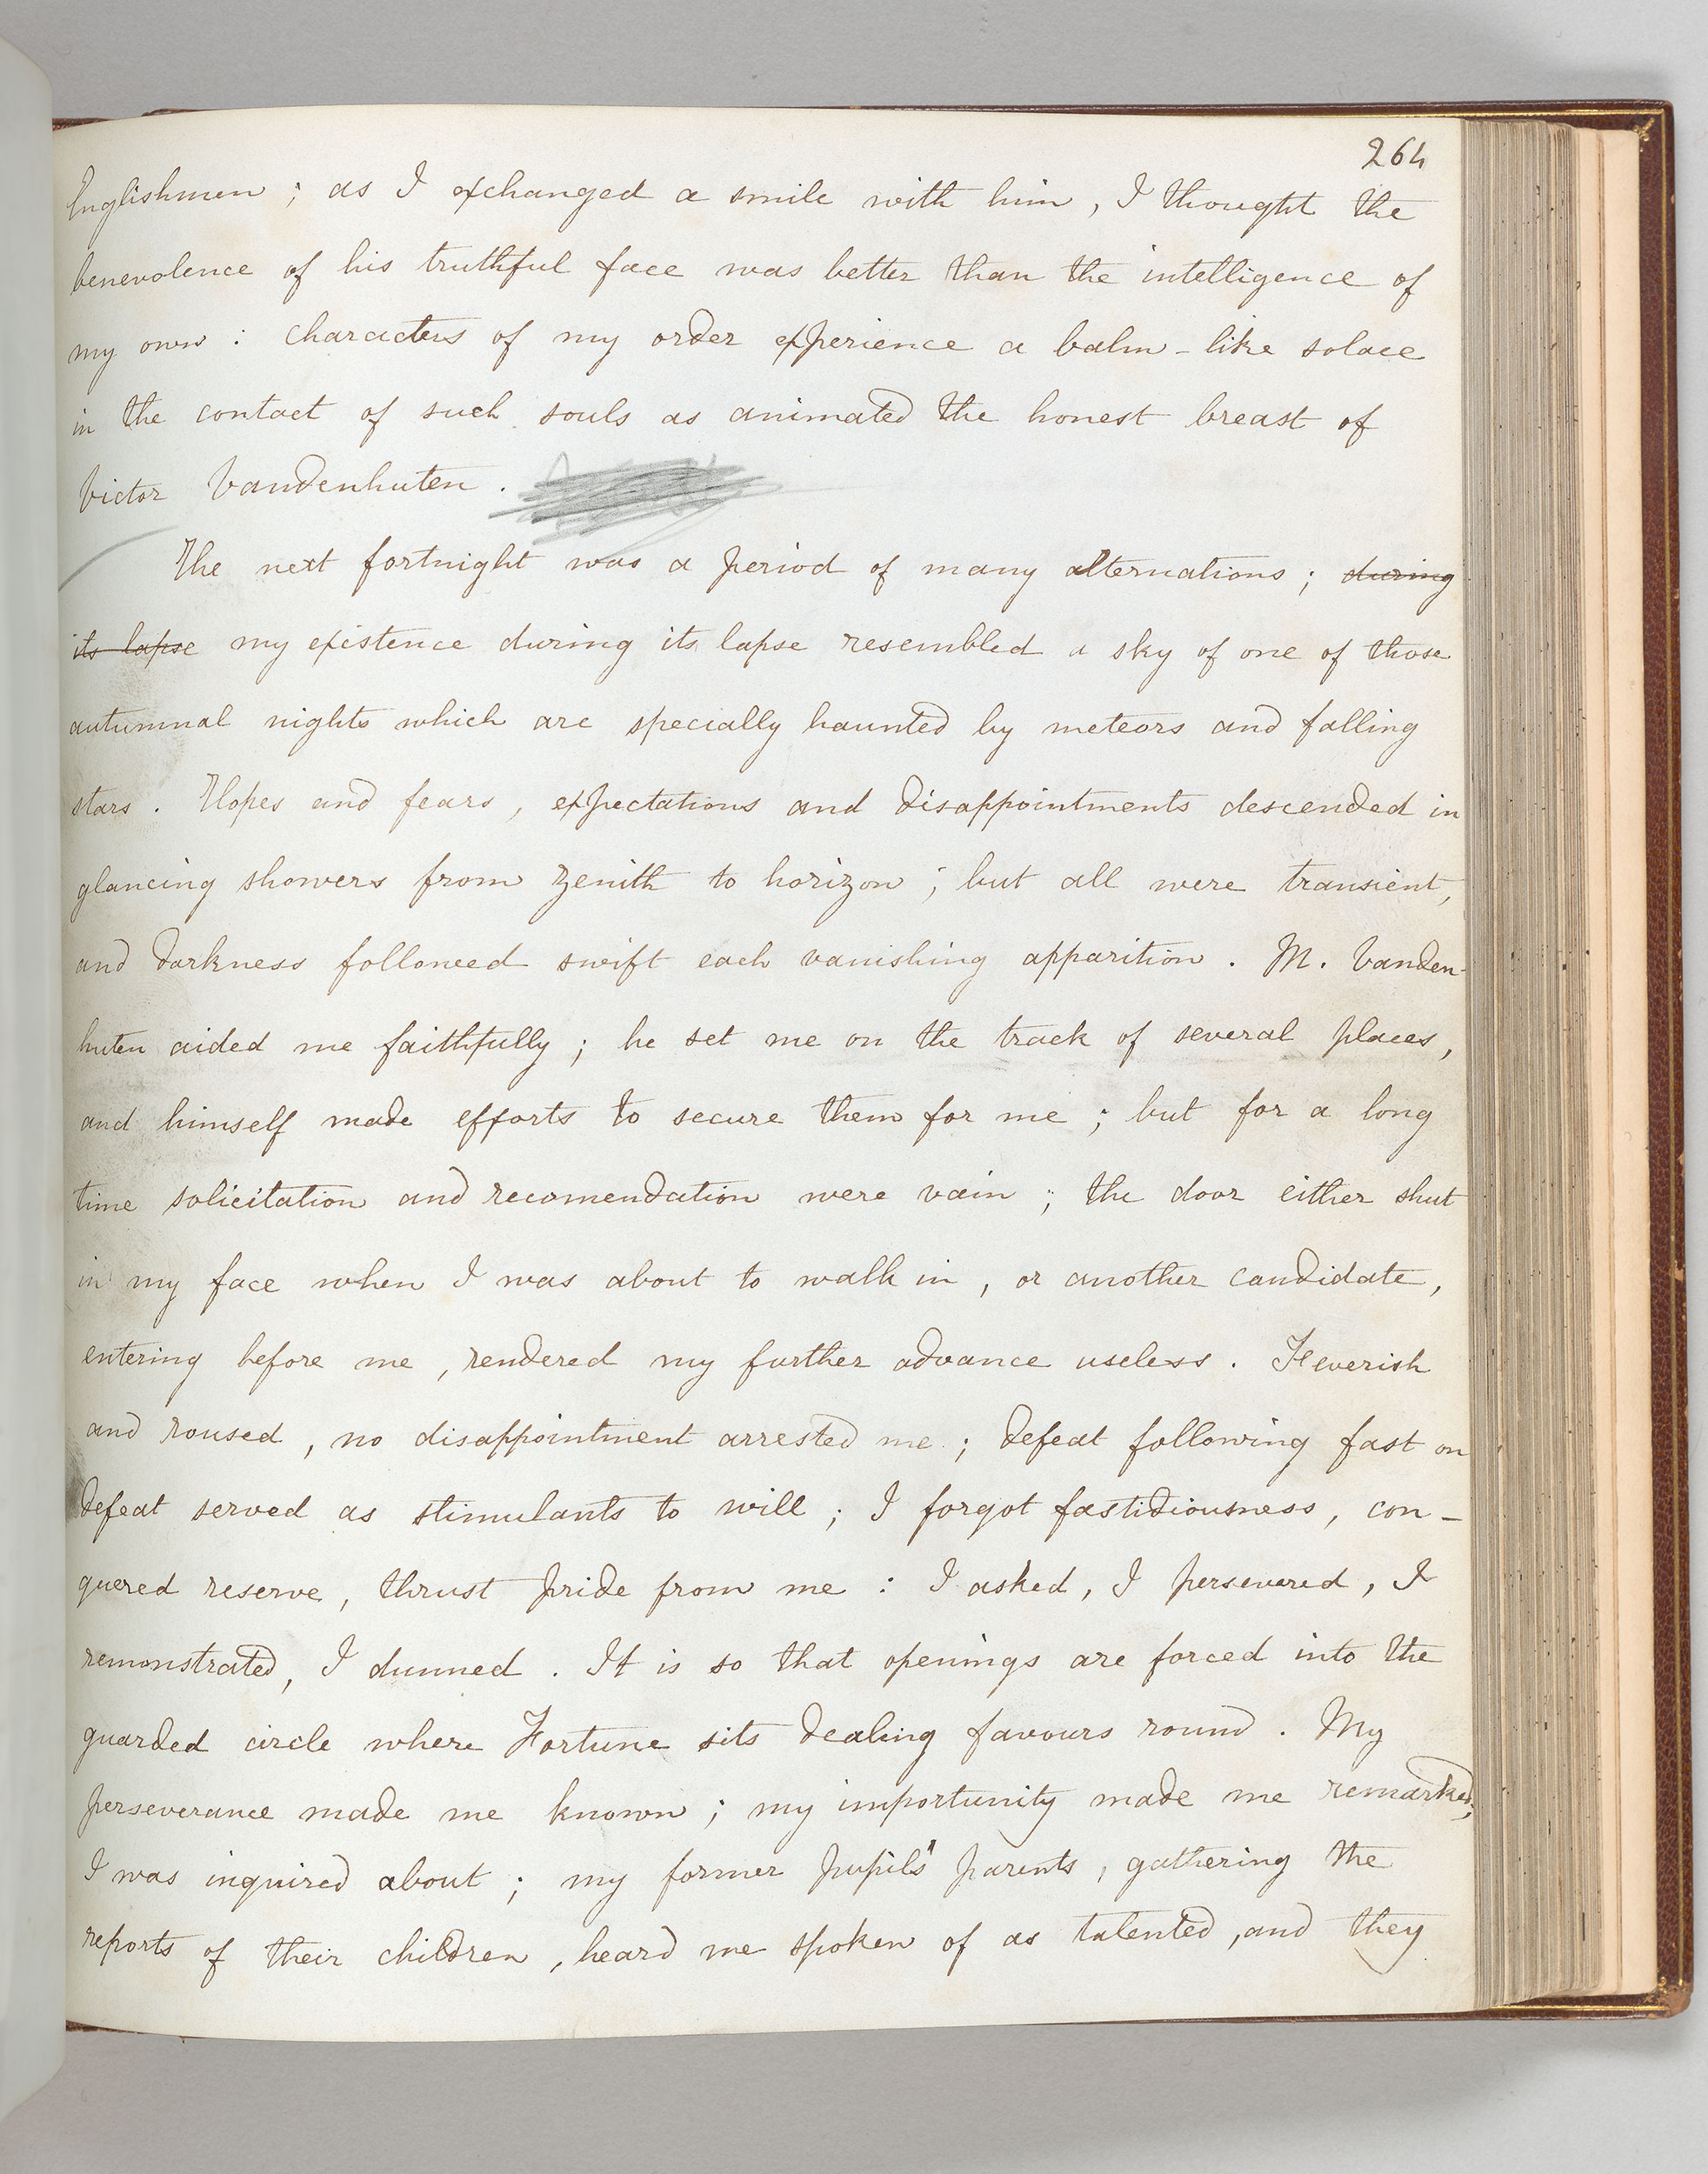 264
Englishmen ; as I exchanged a smile with him , I thought the
benevolence of his truthful face was better than the intelligence of
my own : characters of my order experience a balm - like solace
in the contact of such souls as animated the honest breast of
Victor Vandenhuten .
The next fortnight was a period of many alternations ; during
its lapse my existence during its lapse resembled a sky of one of those
autumnal nights which are specially haunted by meteors and falling
stars . Hopes and fears , expectations and disappointments descended in
glancing showers from zenith to horizon ; but all were transient,
and darkness followed swift each vanishing apparition . M. Vanden-
huten aided me faithfully ; he set me on the track of several places,
and himself made efforts to secure them for me ; but for a long
time solicitation and recomendation were vain ; the door either shut
in my face when I was about to walk in , or another candidate ,
entering before me , rendered my further advance useless . Feverish
and roused , no disappointment arrested me ; defeat following fast on
defeat served as stimulants to will ; I forgot fastidiousness , con -
quered reserve , thrust pride from me : I asked , I persevered , I
remonstrated, I dunned . It is so that openings are forced into the
guarded circle where Fortune sits dealing favours round . My
perseverance made me known ; my importunity made me remarked;
I was inquired about ; my former pupils' parents , gathering the
reports of their children , heard me spoken of as talented , and they